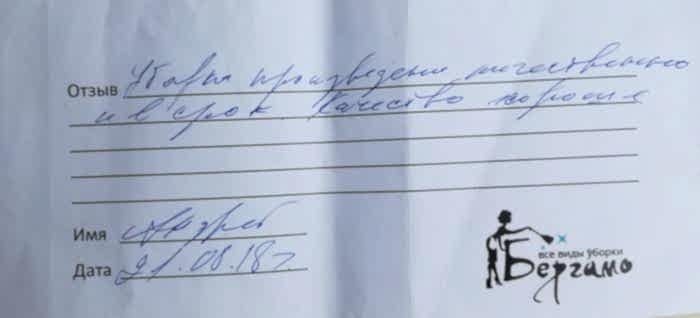 Отзыв Уборка произведена качественно
и в срок. Качество хорошее
Имя Андрей
Дата 21.08.18 г.
все виды уборки
Бергамо